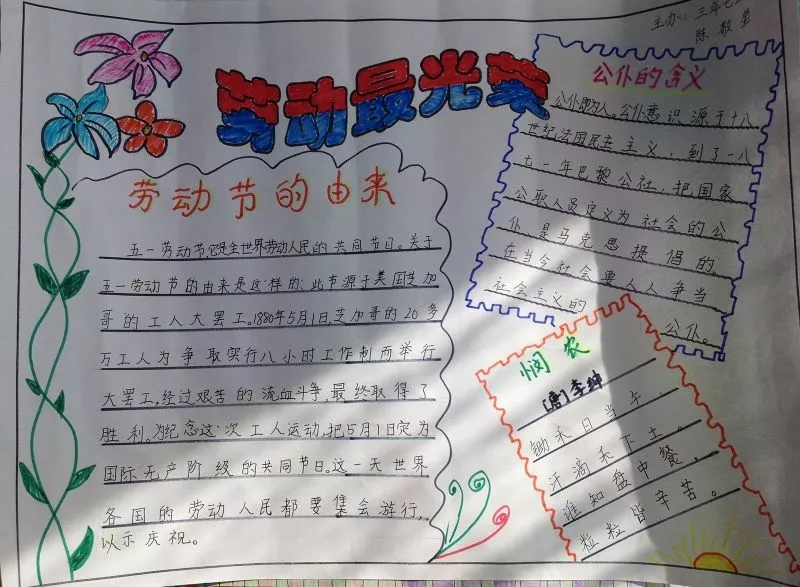 主办：三年七
陈敬莹
劳动最光荣
劳动节的由来
五一劳动节,它是全世界劳动人民的共同节日。关于
五一劳动节的由来是这样的：此节源于美国芝加
哥的工人大罢工。1880年5月1日,芝加哥的20多
万工人为争取实行八小时工作制而举行
大罢工,经过艰苦的流血斗争,最终取得了
胜利。为纪念这次工人运动,把5月1日定为
国际无产阶级的共同节日。这一天世界
各国的劳动人民都要集会游行,
以示庆祝。
公仆的含义
公仆即为人。公仆意识源于十八
世纪法国民主主义，到了一八
七一年巴黎公社，把国家
公职人员定义为社会的公
仆，是马克思提倡的，
在当今社会要人人争当
社会主义的公仆。
悯农
[唐]李绅
锄禾日当午，
汗滴禾下土。
谁知盘中餐，
粒粒皆辛苦。